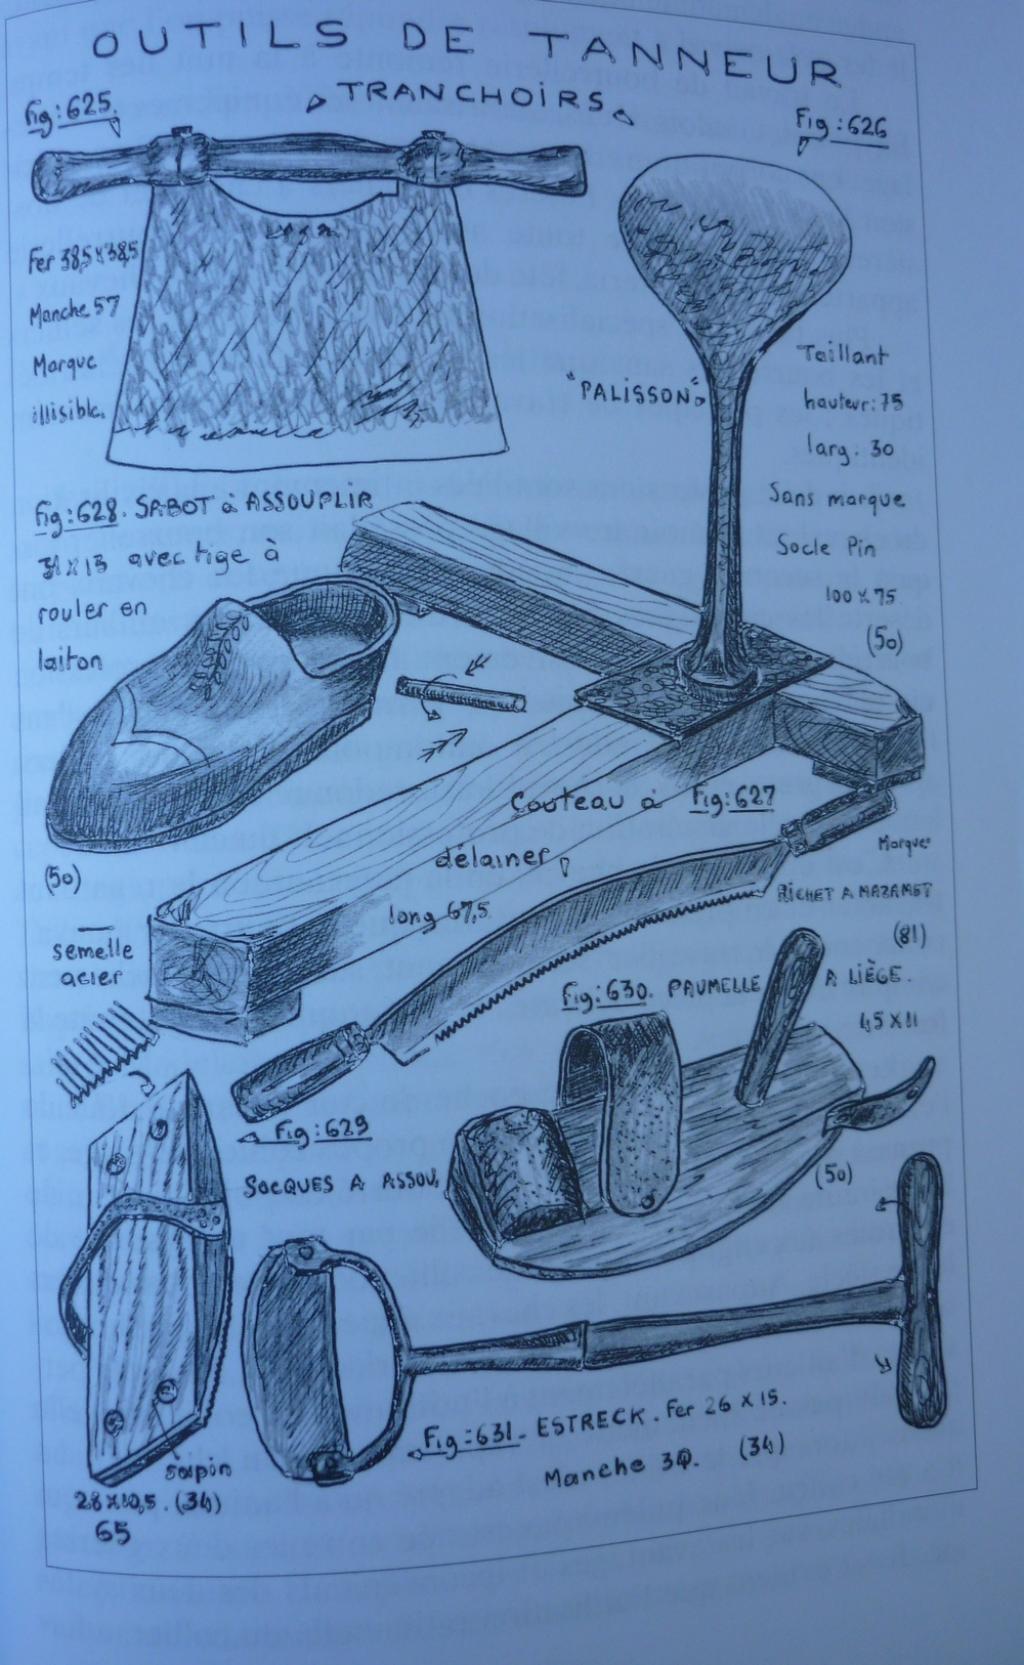 OUTILS DE TANNEUR
TRANCHOIRS
Fig:625.
Fer 38,5 x 38,5
Manche 57
Marque
illisible.
Fig:626
"PALISSON"
Taillant
hauteur:75
larg. 30
Sans marque
Socle Pin
100 x 75
(50)
Fig:628. SABOT à ASSOUPLIR
31 x 13 avec tige à
rouler en
laiton
(50)
Couteau à Fig:627
délainer
long 67,5
Marque
RICHET A MAZAMET
(81)
semelle
acier
Fig:629
SOCQUES A ASSOU.
sapin
28 x 10,5. (34)
Fig:630. PAUMELLE A LIÈGE.
45 x 11
(50)
Fig:631. ESTRECK. Fer 26 x 15.
Manche (34)
65